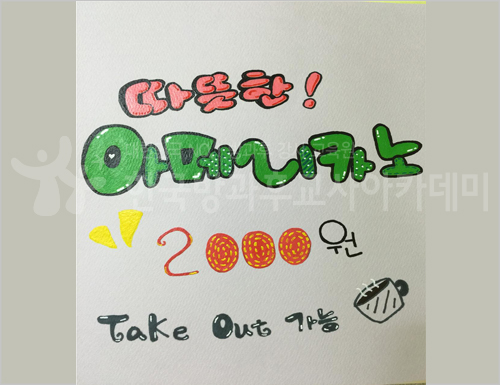 따뜻한!
아메리카노
2000원
Take Out 가능
전국방과후교사아카데미